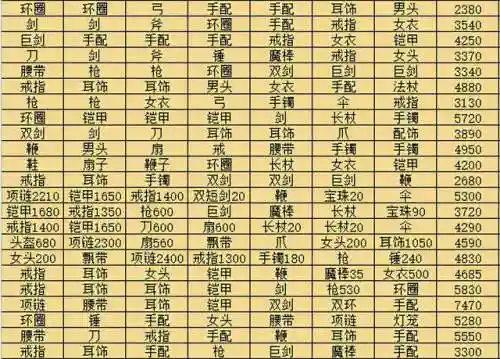 环圈 环圈 弓 手配 手配 耳饰 男头 2380
剑 剑 斧 环圈 手配 戒指 女衣 3540
巨剑 手配 手配 手配 戒指 女衣 铠甲 4250
刀 剑 斧 锤 魔棒 戒指 女头 3370
腰带 枪 枪 环圈 双剑 巨剑 巨剑 3340
戒指 耳饰 耳饰 男头 女衣 手配 法杖 4880
枪 枪 女衣 弓 手镯 伞 戒指 3130
环圈 铠甲 铠甲 铠甲 剑 长杖 手镯 5720
双剑 剑 刀 耳饰 耳饰 爪 配饰 3890
鞭 男头 扇 戒 腰带 手镯 手镯 4950
鞋 扇子 鞭子 环圈 长杖 女衣 铠甲 4200
戒指 耳饰 手镯 双剑 双剑 巨剑 鞭 2680
项链2210 铠甲1650 戒指1400 双短剑20 鞭 宝珠20 伞 5300
铠甲1680 戒指1350 枪600 巨剑 魔棒 长杖 宝珠90 3720
戒指1400 铠甲1650 刀600 扇600 长杖20 长杖20 伞 4290
头盔680 项链2300 扇560 飘带 爪 女头200 耳饰1050 4590
女头200 飘带 项链2400 戒指1300 手镯180 枪 锤240 4830
戒指 耳饰 女头 铠甲 鞭 魔棒35 女衣500 4685
戒指 耳饰 耳饰 铠甲 剑 枪530 环圈 5830
项链 腰带 耳饰 铠甲 双剑 双环 手配 7470
环圈 锤 手配 女头 腰带 项链 灯笼 5280
腰带 刀 戒指 手配 鞭 耳饰 手配 5550
戒指 耳饰 手配 枪 巨剑 魔棒 手配 3300